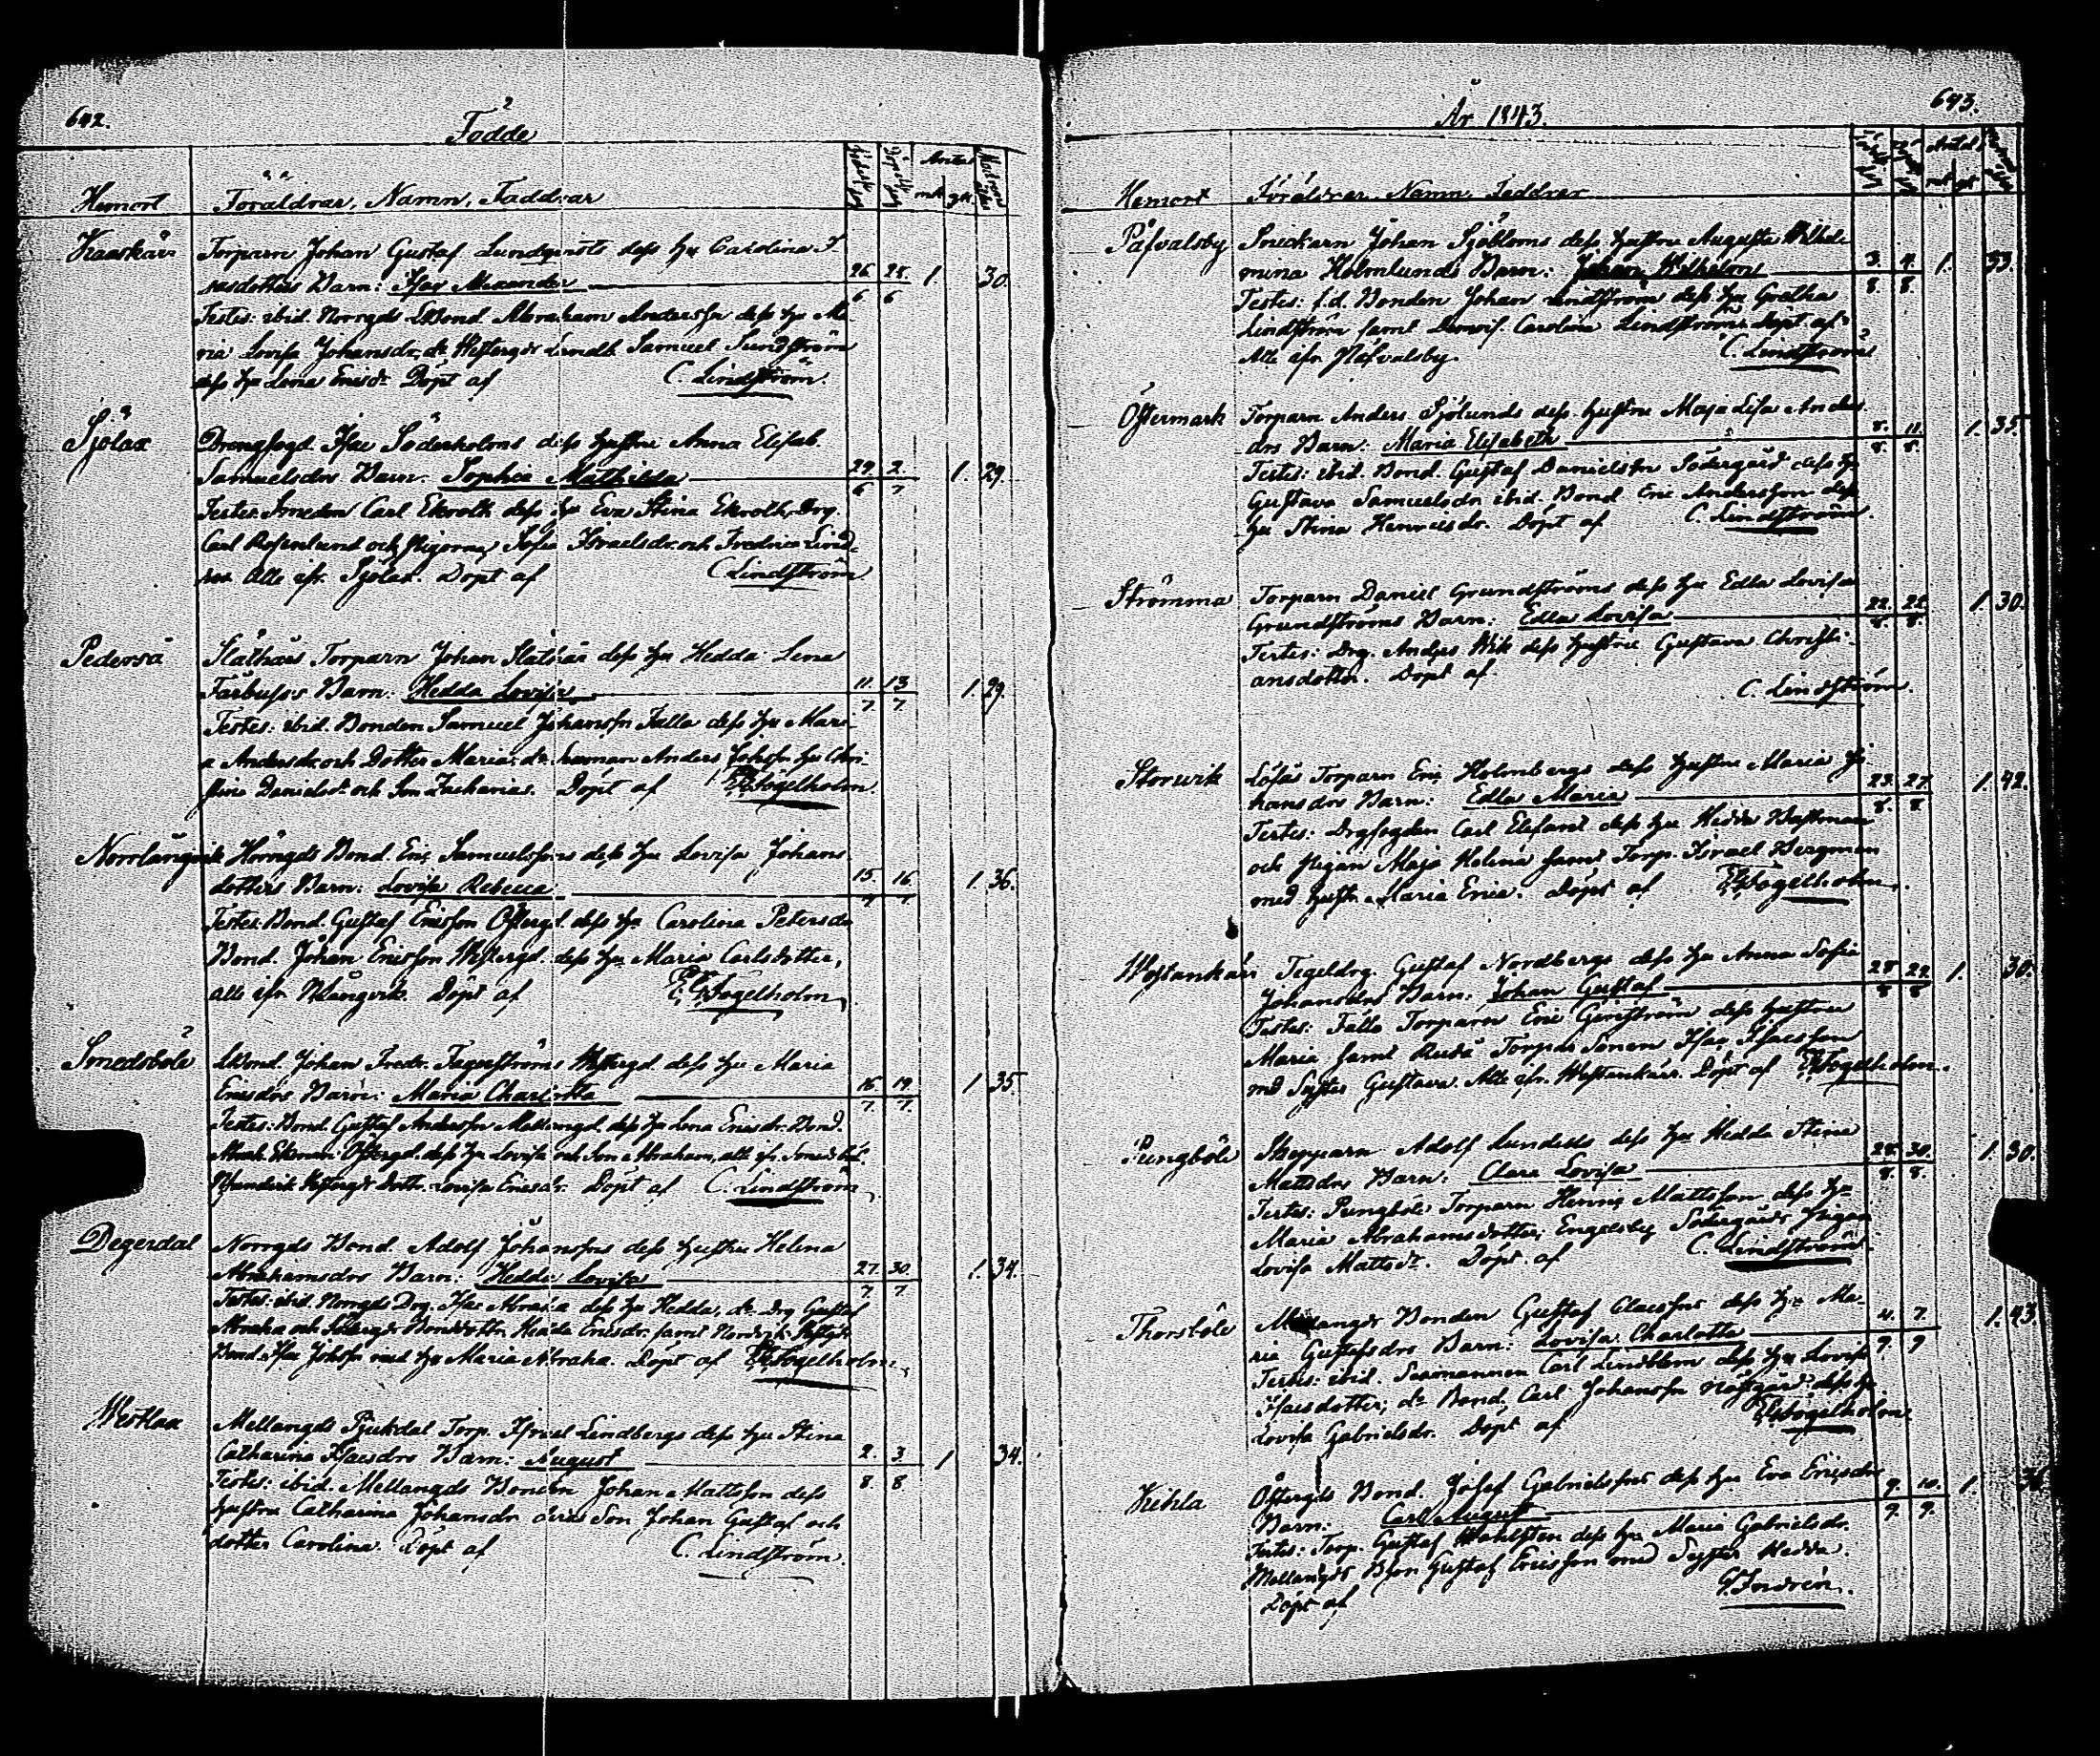 642.
Födde
Hemort Föräldrar, Namn, Faddrar
Torparn Johan Gustaf Lundqvists dess hu Carolina I
sasdotters Barn: Isac Alexander 26 28 1 30.
6 6
Testes: ibid. Norrgds LBond Abraham Andersson dess hu Ma
ria Lovisa Johansdr, do Westergds Lindb Samuel Sundström
dess hu Lena Ericsdr Döpt af C. Lindström.
Sjölax Drengfogd. Isac Söderholms dess hustru Anna Elisab.
Samuelsdrs Barn: Sophia Mathilda 29. 2. 1. 29.
6 7
Testes: Smeden Carl Ekroth dess hu Eva Stina Ekroth, Drg.
Carl Rosenlund och Pigorna Sofia Israelsdr och Fredrica Lind-
Alle ifr. Sjölax. Döpt af C. Lindström
Pederså Slåthäll Torparn Johan dess hu Hedda Lena
Barn: Hedda Lovisa 11. 13 1. 29.
7 7
Testes: ibid. Bonden Samuel Johansson Falla dess hu Mari-
a Andersdr och Dotter Maria; do Anders Johsson hu Chri-
stina Danielsdr och Son Zacharias. Döpt af Fogelholm.
Norrlångvik Bond. Eric Samuelssons dess hu Lovisa Johans
dotters Barn: Lovisa Rebecca 15. 16. 1. 36.
7 7
Testes: Bond. Gustaf Ericsson Östergd. dess hu Carolina Petersdr
Bond. Johan Ericsson Westergd. dess hu Maria Carlsdotter,
alle ifr NLångvik. Döpt af Fogelholm
Smedsböle LBond. Johan Fredr. Fagerströms Westergd. dess hu Maria
Ericsdrs Barn: Maria Charlotta 16 19. 1. 35.
7. 7.
Testes: Bond. Gustaf Andersson Mellangd. dess hu Lena Ericsdr. Bond.
Abrah. Ekman Östergd. dess hu Lovisa och Son Abraham, alle ifr. Smedsböl.
Dottr. Lovisa Ericsdr. Döpt af C. Lindström
Degerdal Norrgds Bond. Adolf Johanssons dess hustru Helena
Abrahamsdrs Barn: Hedda Lovisa 27. 30. 1. 34.
7 7
Testes: ibid. Norrgds Drg. Isac dess hu Hedda, do Drg Gustaf
och Bonddottr. Hedda Ericsdr. samt
Bond. Isac Johsson med hu Maria Abraha. Döpt af Fogelholm
Westlax Mellangds Torp. Israel Lindbergs dess hu Stina
Catharina Isacsdrs Barn: August 2. 3. 1 34.
8. 8
Testes: ibid. Mellangds Bonden Johan Mattsson dess
hustru Catharina Johansdr deras Son Johan Gustaf och
dotter Carolina. Döpt af C. Lindström.
643.
År 1843.
Hemort Föräldrar Namn Faddrar
Påfvalsby Snickarn Johan Sjöbloms dess hustru Augusta Wilhel-
mina Holmlunds Barn: Johan Wilhelm 3. 4. 1. 33.
8. 8.
Testes: f.d. Bonden Johan Lindström dess hu Gretha
Lindström samt Carolina Lindström. Döpt af
Alle ifr. Påfvalsby. C. Lindström
Östermark Torparn Anders Sjölunds dess hustru Maja Lisa Anders
drs Barn: Maria Elisabeth 8. 11. 1. 35.
8. 8.
Testes: ibid. Bond. Gustaf Danielsson Södergård dess hu
Gustava Samuelsdr ibid. Bond Eric Andersson dess
hu Stina Henricsdr. Döpt af C. Lindström.
Strömma Torparn Daniel Grundströms dess hu Edla Lovisa
Grundströms Barn: Edla Lovisa 22. 1. 30.
8. 8.
Testes: Drg. Anders Wik dess hustru Gustava Christi-
ansdotter. Döpt af.
C. Lindström.
Storwik Torparn Eric Holmbergs dess hustru Maria Jo
hansdrs Barn: Edla Maria 23. 27. 1. 42.
8. 8
Testes: Drgfogden Carl Elefant dess hu Hedda
och Pigan Maja Helena samt Torp. Israel Bergman
med hustr. Maria Erica. Döpt af Fogelholm.
Westankärr Tegeldrg. Gustaf Nordbergs dess hu Anna Sofia
Johansdrs Barn: Johan Gustaf 28 29. 1. 30.
8 8
Testes: Torparn Eric dess hustru
Maria samt Torpar Sonen Isac Isacsson
med Syster Gustava. Alle ifr. Westankärr. Döpt af Fogelholm.
Pungböle Adolf Lundells dess hu Hedda Stina
Mattsdrs Barn: Clara Lovisa 28. 30. 1. 30.
8. 8.
Testes: Pungböle Torparn Henric Mattsson dess hu
Maria Abrahamsdotter; Engelsby Södergårds Pigan
Lovisa Mattsdr. Döpt af C. Lindström.
Thorsböle Bonden Gustaf Claessons dess hu Ma-
ria Gustafsdrs Barn: Lovisa Charlotta 4. 7. 1. 43.
9. 9
Testes: ibid. Carl Lindblom dess hu Lovisa
Isacsdotter; do Bond. Carl Johansson dess hu
Lovisa Gabrielsdr. Döpt af Fogelholm
Östergds Bond. Josef Gabrielssons dess hu Eva Ericsdrs
Barn: Carl August 9. 10. 1
9. 9.
Testes: Torp. Gustaf Wahlsten dess hu Maria Gabrielsdr.
Mellangds Gustaf Ericsson med Syster Hedda.
Döpt af G. Indrén.